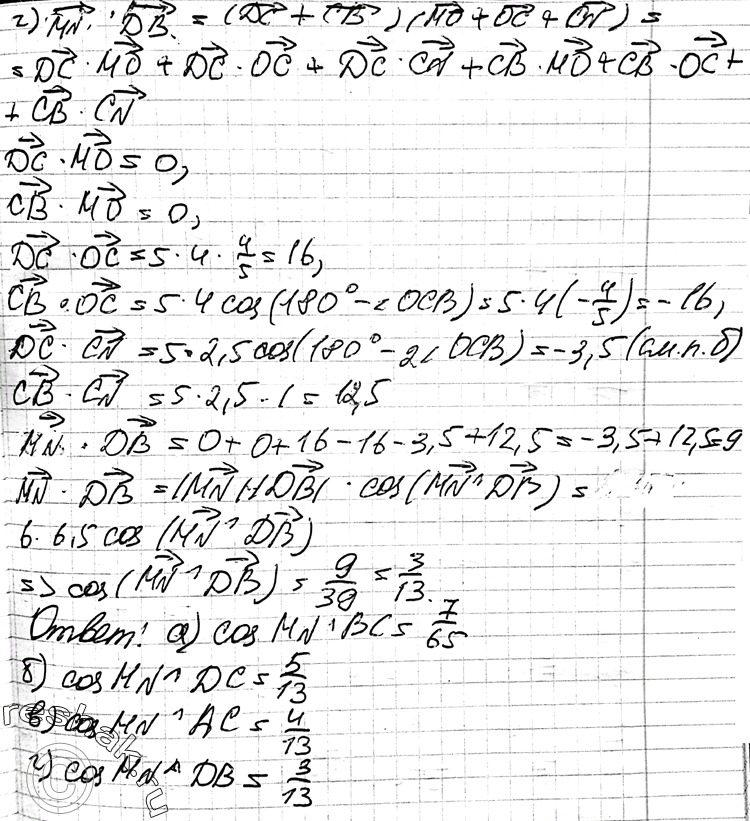 г) MN · DB = (DC + CB) (MO + OC + CN) =
= DC · MO + DC · OC + DC · CN + CB · MO + CB · OC +
+ CB · CN
DC · MO = 0,
CB · MO = 0,
DC · OC = 5 · 4 · 4/5 = 16,
CB · OC = 5 · 4 cos(180° - ∠OCB) = 5 · 4 (-4/5) = -16,
DC · CN = 5 · 2,5 cos(180° - 2∠OCB) = -3,5 (см.п.б)
CB · CN = 5 · 2,5 · 1 = 12,5
MN · DB = 0 + 0 + 16 - 16 - 3,5 + 12,5 = -3,5 + 12,5 = 9
MN · DB = |MN| · |DB| · cos(MN^DB) =
6 · 6,5 cos (MN^DB)
=> cos(MN^DB) = 9/39 = 3/13.
Ответ: а) cos MN^BC = 7/65
б) cos MN^DC = 5/13
в) cos MN^AC = 4/13
г) cos MN^DB = 3/13
reshak.ru
©